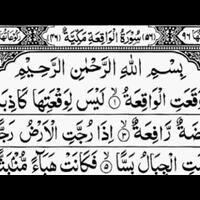 (٥٦) سُوْرَةُ الْوَاقِعَةِ مَكِّيَّةٌ (٤٦)
بِسْمِ اللّٰهِ الرَّحْمٰنِ الرَّحِيْمِ
وَقَعَتِ الْوَاقِعَةُ ۝١ لَيْسَ لِوَقْعَتِهَا كَاذِبَ
ضَةٌ رَّافِعَةٌ ۝٣ اِذَا رُجَّتِ الْاَرْضُ رَجًّ
تِ الْجِبَالُ بَسًّا ۝٥ فَكَانَتْ هَبَآءً مُّنْۢبَثًّ